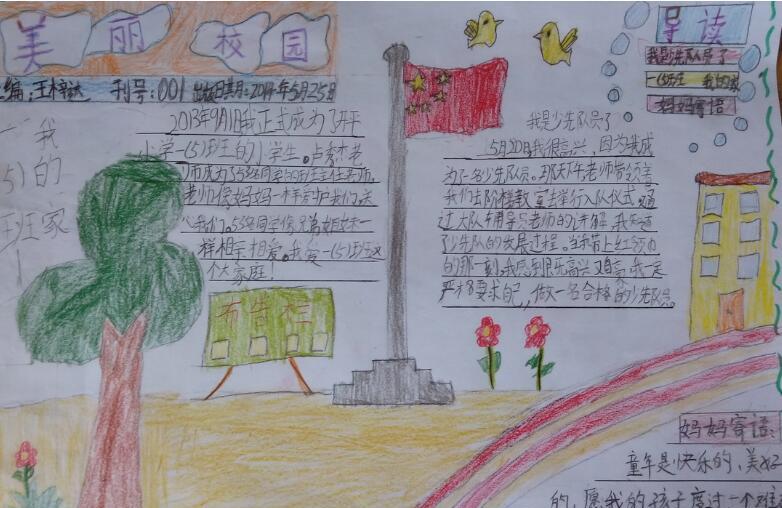 美丽校园
编:王梓达 刊号:001 出版日期:2014年5月25日
导读
我是少先队员了
一(5)班 我的家
妈妈寄语
一(5)班
我的家
2013年9月1日我正式成为了开平
小学一(5)班的小学生。卢秀杰老
师成为了55名同学的班主任老师。
老师像妈妈一样爱护我们,关
心我们。55名同学像兄弟姐妹一
样相亲相爱。我爱一(5)班这
个大家庭!
我是少先队员了
5月20日我很高兴,因为我成
为了一名少先队员。那天下午,老师带领着
我们去阶梯教室去举行入队仪式。通
过大队辅导员老师的讲解,我知道
了少先队的发展过程。当我带上红领巾
的那一刻,我感到既高兴又自豪,我一定
严格要求自己,做一名合格的少先队员。
布告栏
妈妈寄语:
童年是快乐的、美好
的,愿我的孩子度过一个难